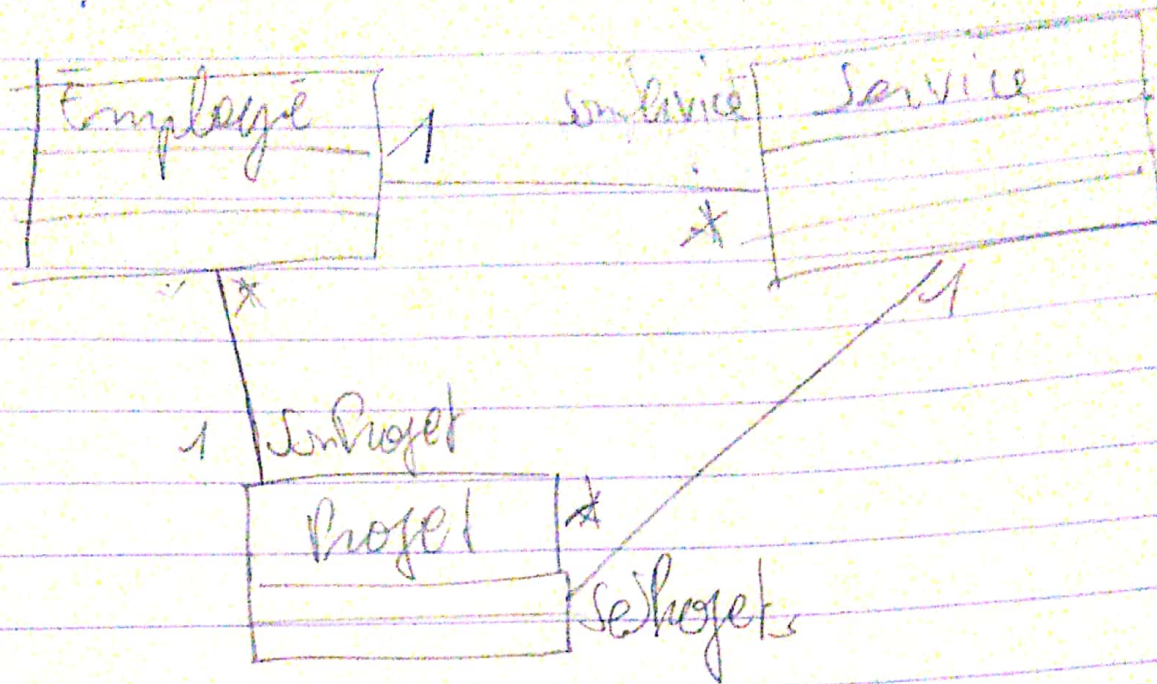 Employé
1
sonService
Service
*
*
1
1
sonProjet
Projet
*
SesProjets